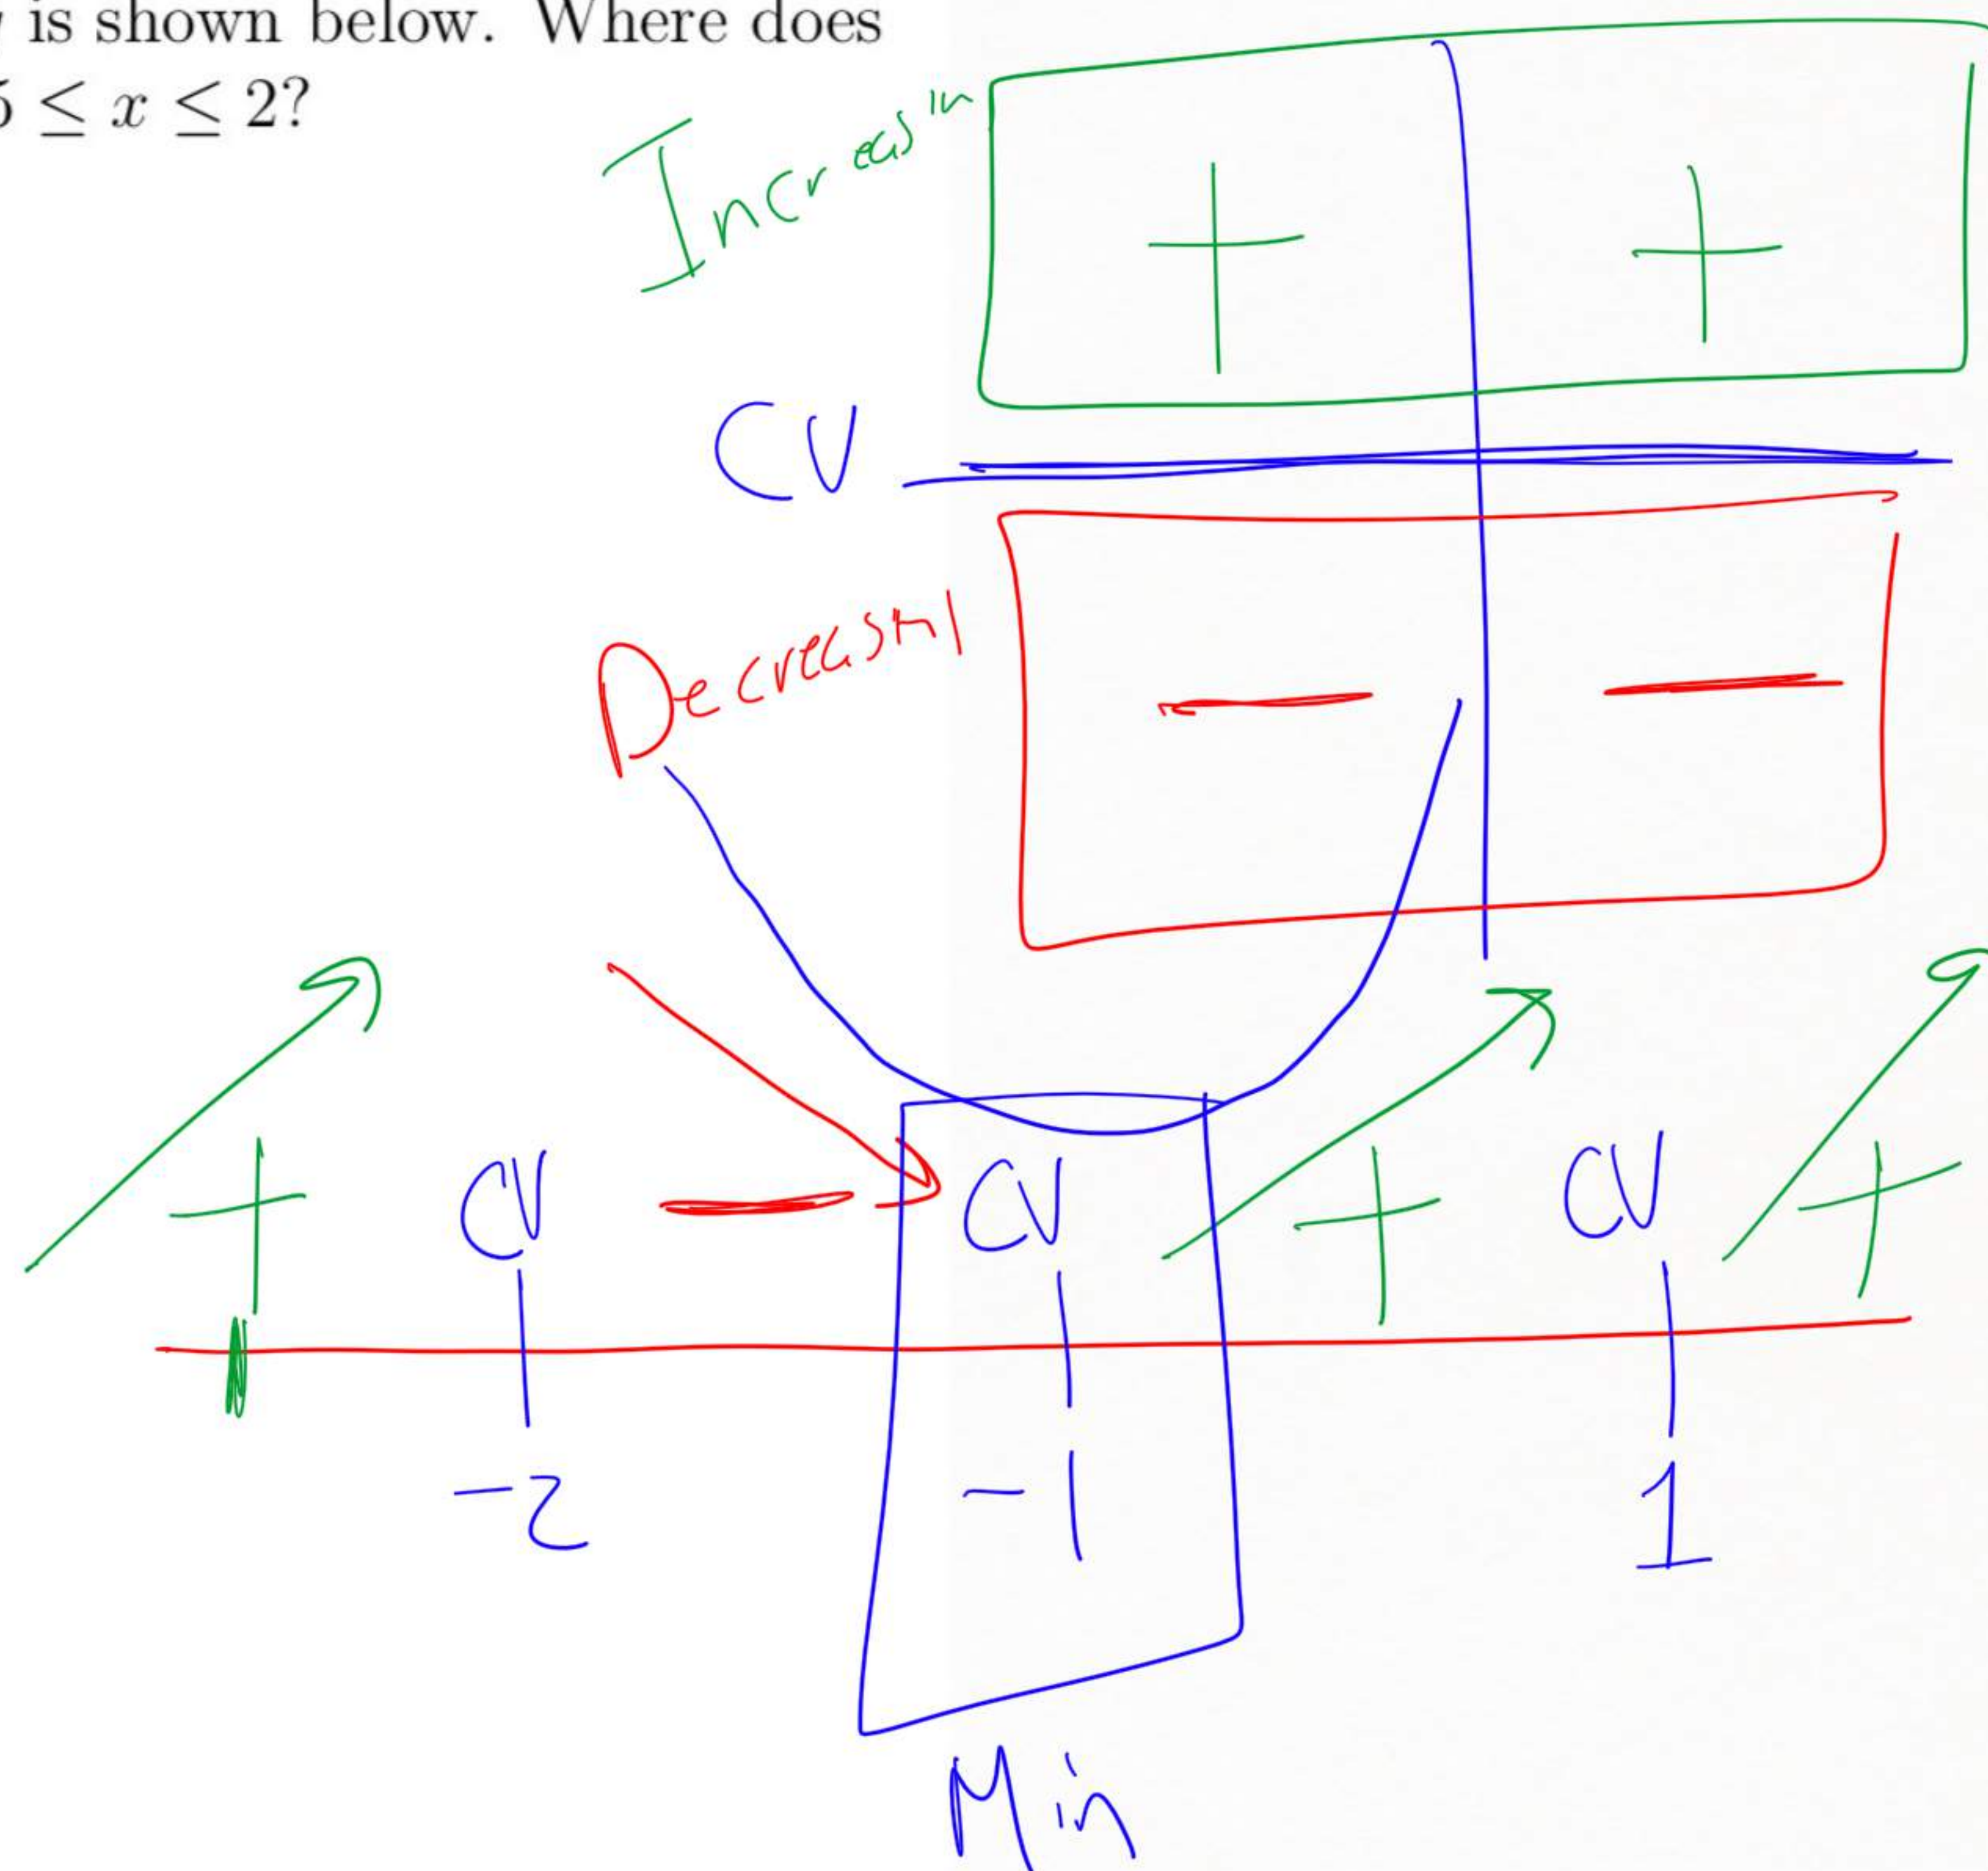 is shown below. Where does
≤ x ≤ 2?
Increasin
+ +
CV
Decreasin
− −
+ CV − CV + CV +
-2 -1 1
Min